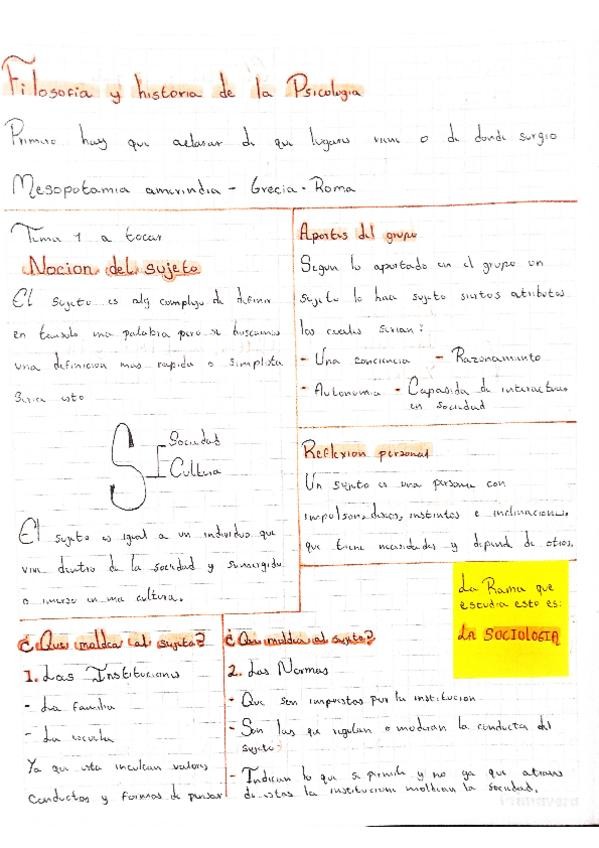 Filosofia y historia de la Psicologia
Primero hay que aclarar de que lugares viene o de donde surgio
Mesopotamia amerindia - Grecia - Roma
Tema 1 a tocar
Nocion del sujeto
El sujeto es algo complejo de definir
en tan solo una palabra pero si buscamos
una definicion mas rapida o simplista
seria esto
S
Sociedad
Cultura
El sujeto es igual a un individuo que
vive dentro de la sociedad y sumergido
o inmerso en una cultura.
Aportes del grupo
Segun lo aportado en el grupo un
sujeto lo hace sujeto siertos atributos
los cuales serian:
- Una conciencia - Razonamiento
- Autonomia - Capasida de interactuar
en sociedad
Reflexion personal
Un sujeto es una persona con
impulsos, deseos, instintos e inclinaciones,
que tiene necesidades y depende de otros.
La Rama que
estudia esto es:
LA SOCIOLOGIA
¿Que moldea al sujeto?
1. Las Instituciones
- La familia
- La escuela
Ya que esta inculcan valores,
conductas y formas de pensar
¿Que moldea al sujeto?
2. Las Normas
- Que son impuestas por la institucion
- Son las que regulan o moderan la conducta del
sujeto
- Indican lo que se permite y no ya que atraves
de estas la institucion moldean la sociedad.
Primavera